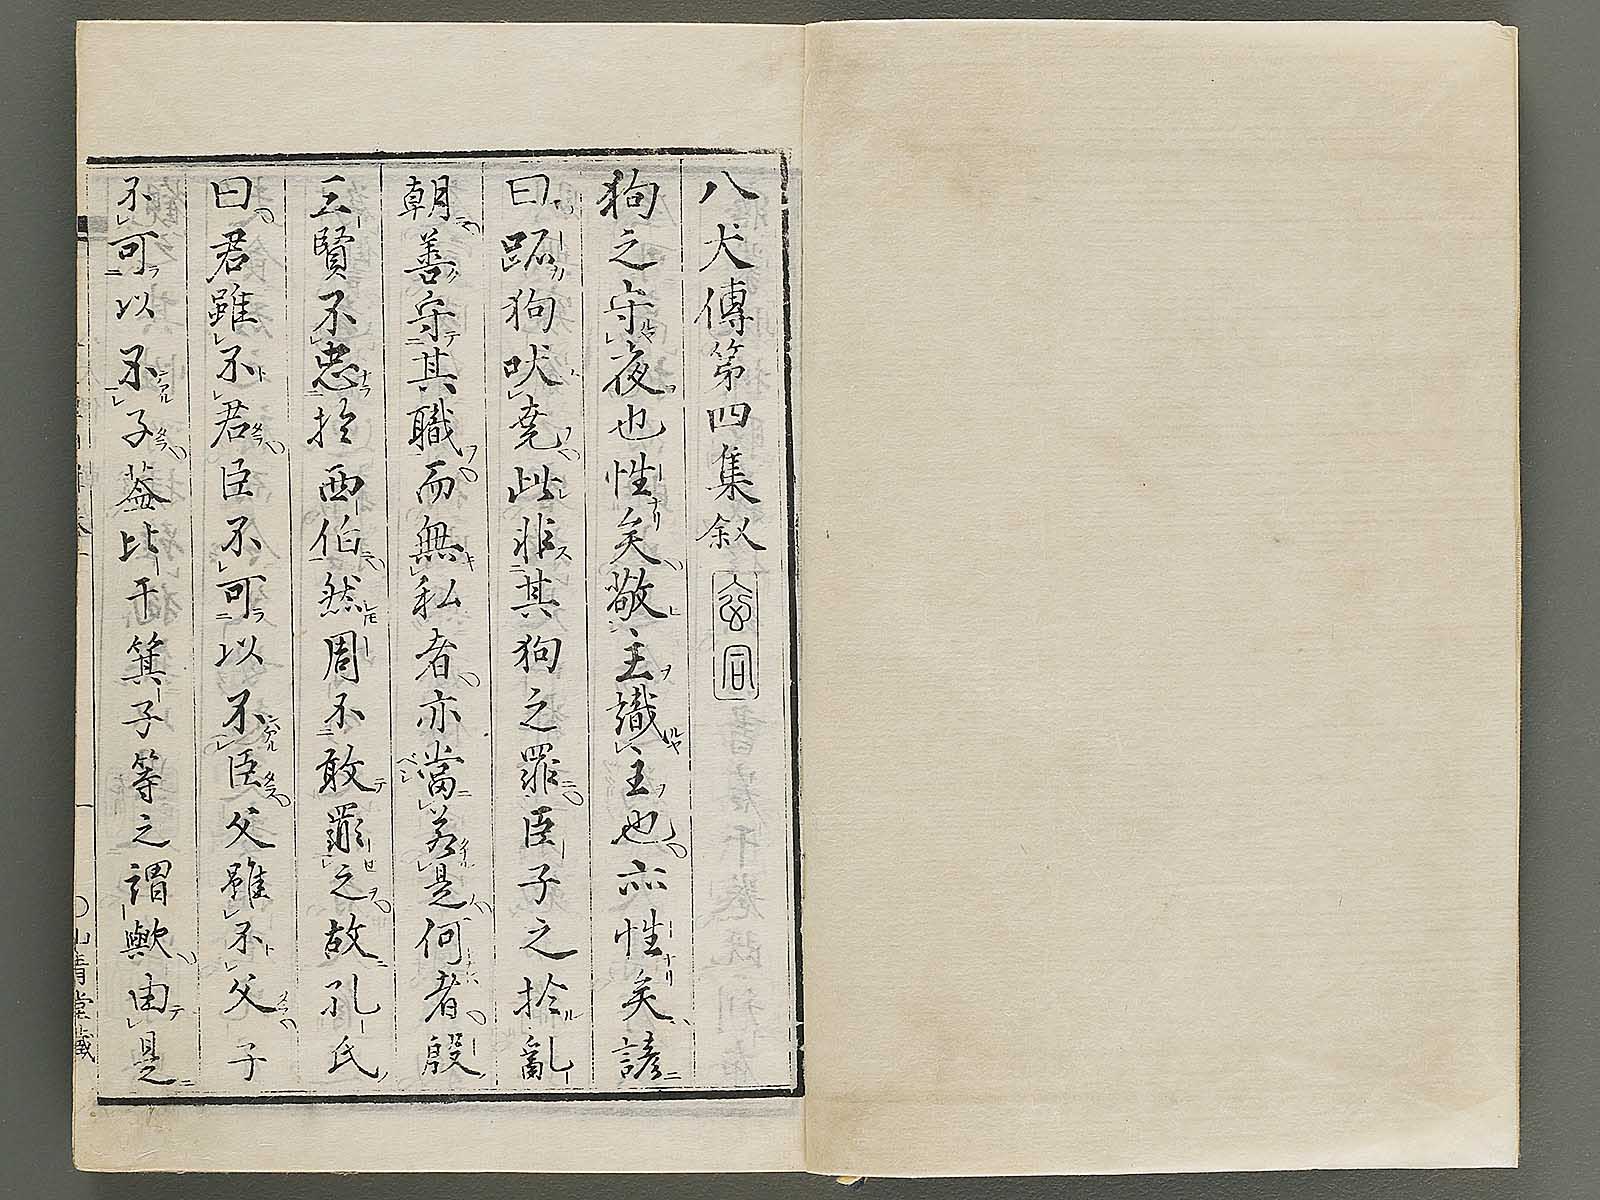 八犬傳第四集叙
狗之守夜也性矣敬主識主也亦性矣諺
曰跖狗吠堯此非其狗之罪臣子之於亂
朝善守其職而無私者亦當若是何者殷
三賢不忠於西伯然周不敢罪之故孔氏
曰君雖不君臣不可以不臣父雖不父子
不可以不子葢比干箕子等之謂歟由是
山青堂藏